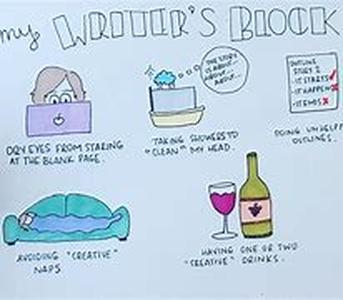 my WRITER'S BLOCK
THE STORY
IS ABOUT...
ABOUT...
ABOUT...
OUTLINE
STORY 2
- IT STARTS
- IT HAPPENS
- IT ENDS
DRY EYES FROM STARING
AT THE BLANK PAGE.
TAKING SHOWERS TO
"CLEAN" MY HEAD.
DOING UNHELPF
OUTLINES.
AVOIDING "CREATIVE"
NAPS
HAVING ONE OR TWO
"CREATIVE" DRINKS.